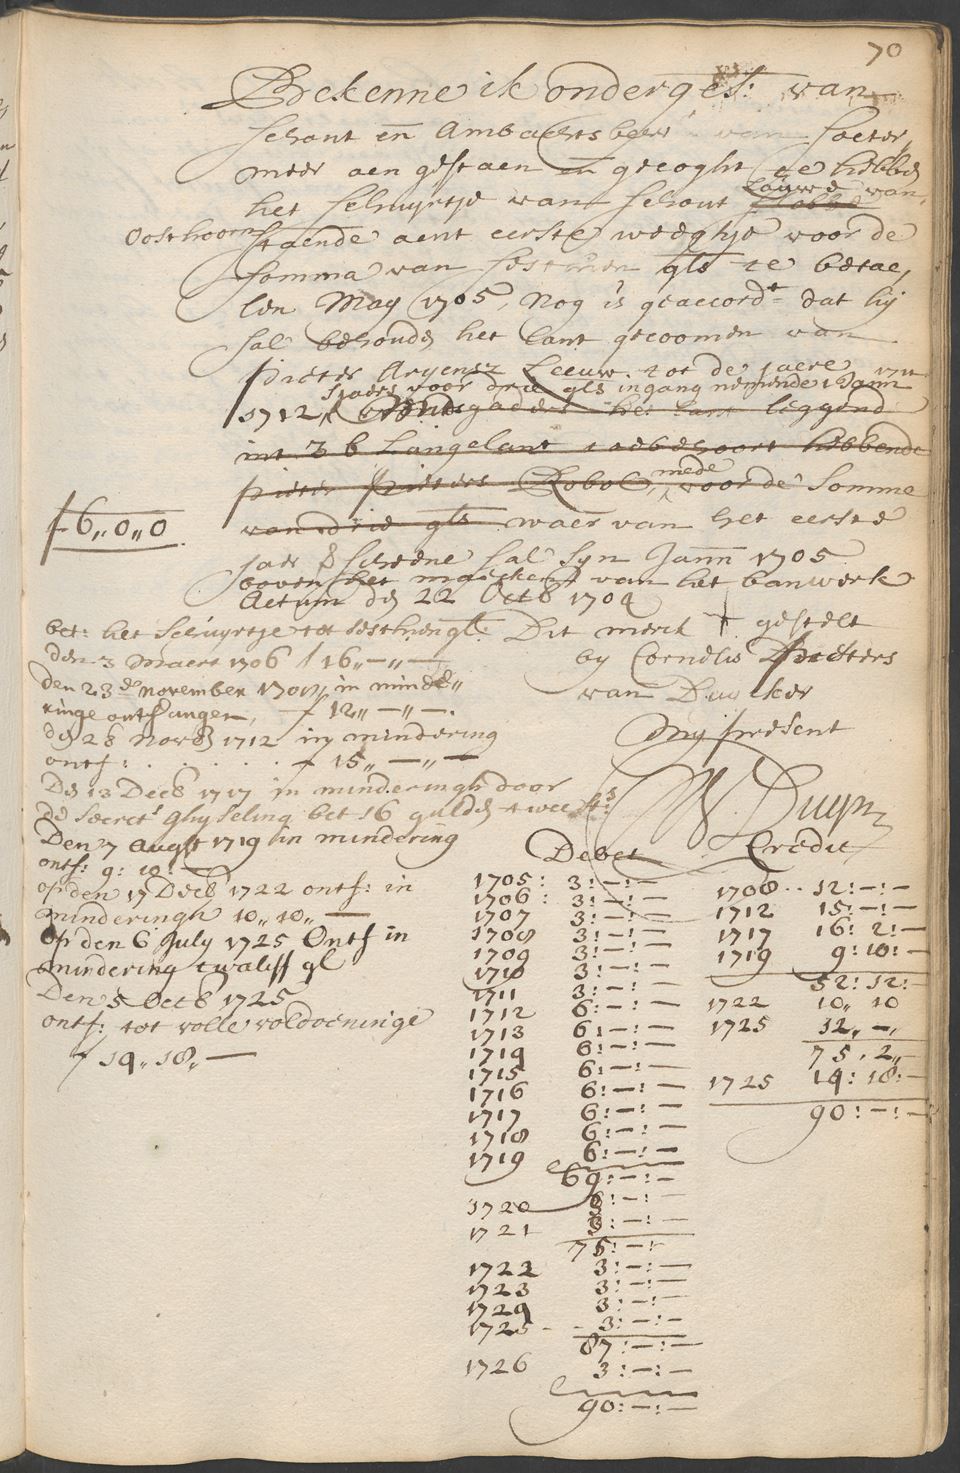 70
Bekenne ik onderges: van
schout en Ambachtsbewr van soeter,
meer aen gestaen en gecoght te hebbe
het schuyrtje van schout Louwe van
Oosthoorn staende aent eerste weeghje voor de
somma van sestien gls te betae,
len Maij 1705, nog is geaccordt dat hij
sal behouden het lant gecoomen van
Pieter Aryensz Leeuw tot de jaere
1712 jaers voor drie gls ingang nemende 1 Jann
gaders het lant leggend
int 3 b Langelant toebehoort hebbende
pieter pieters Robol, mede voor de somme
van drie gls waer van het eerste
f 6,,0,,0
jaer & scheene sal syn Jann 1705
boven het maecken van het banwerk
Actum den 22 Octb 1704
bet: het schuyrtje tot sesthien gl:
den 3 Maert 1706 f 16,,—,,—
den 23de november 1708 in minde,,
ringe ontfangen, f 12,,—,,—.
den 28 Novb 1712 in mindering
ontf: . . . . . f 15,,—,,—
Den 13 Decb 1717 in minderingh door
de secrets ghyseling bet 16 gulden twee sts
Den 7 Augst 1719 in mindering
ontf: 9: 10: —
op den 17 Decb 1722 ontf: in
minderingh 10,,10,,—
op den 6 July 1725 Ontf in
mindering twaliff gl
Den 5 Octb 1725
ontf: tot volle voldoeninge
f 14,,18,,—
Dit merck † gestelt
by Cornelis Pieters
van Duycker
Mij present
W Duyn
Debet
1705: 3:—:—
1706: 3:—:—
1707 3:—:—
1708 3:—:—
1709 3:—:—
1710 3:—:—
1711 3:—:—
1712 6:—:—
1713 6:—:—
1714 6:—:—
1715 6:—:—
1716 6:—:—
1717 6:—:—
1718 6:—:—
1719 6:—:—
69:—:—
1720 3:—:—
1721 3:—:—
75:—:—
1722 3:—:—
1723 3:—:—
1724 3:—:—
1725 - - 3:—:—
87:—:—
1726 3:—:—
90:—:—
Credit
1708 . . 12:—:—
1712 15:—:—
1717 16: 2:—
1719 9: 10:—
52: 12:—
1722 10,, 10
1725 12,,—,,
75,, 2,,—
1725 14: 18:—
90:—:—